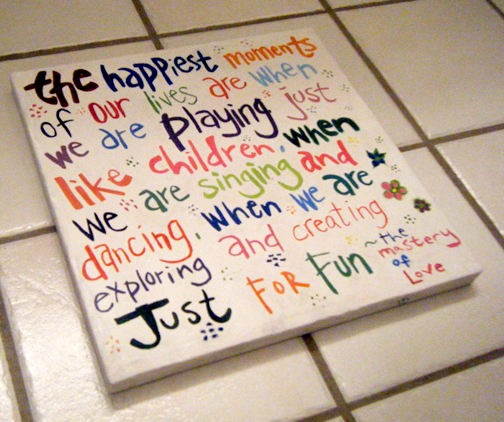 the happiest moments
of our lives are when
we are playing just
like children, when
we are singing and
dancing, when we are
exploring and creating
Just FOR Fun ~ the mastery of Love